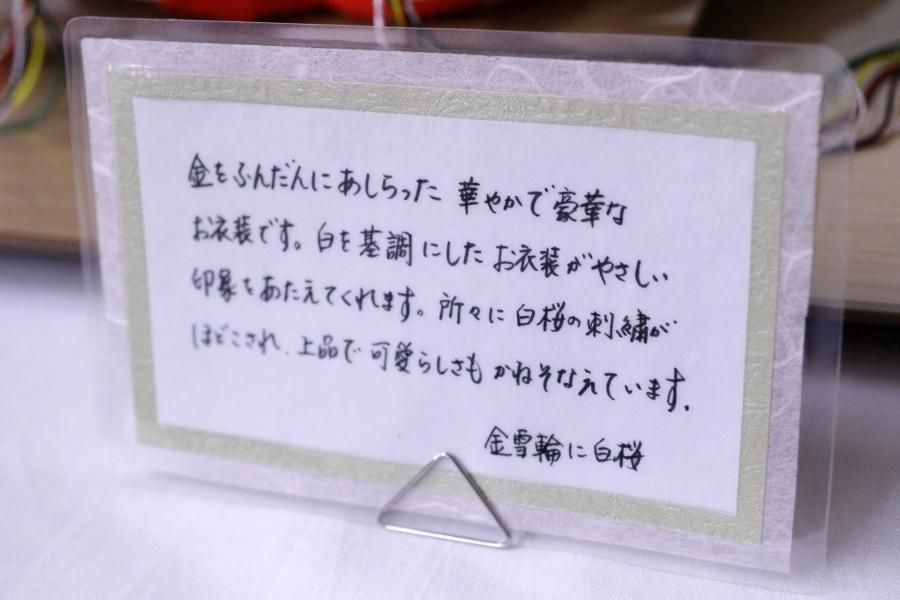 金をふんだんにあしらった 華やかで豪華な
お衣装です。白を基調にした お衣装がやさしい
印象をあたえてくれます。所々に白桜の刺繍が
ほどこされ、上品で可愛らしさも かねそなえています。
金雪輪に白桜